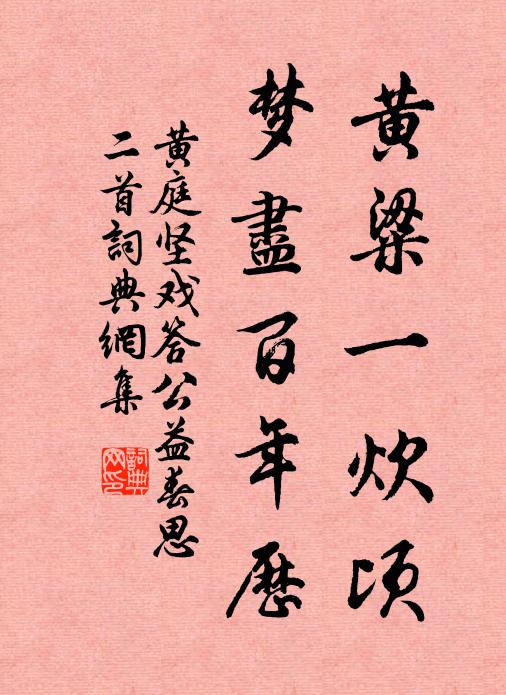 黄粱一炊頃
梦盡百年歷
黄庭坚戏答公益春思
二首詞典網集
詞典网印